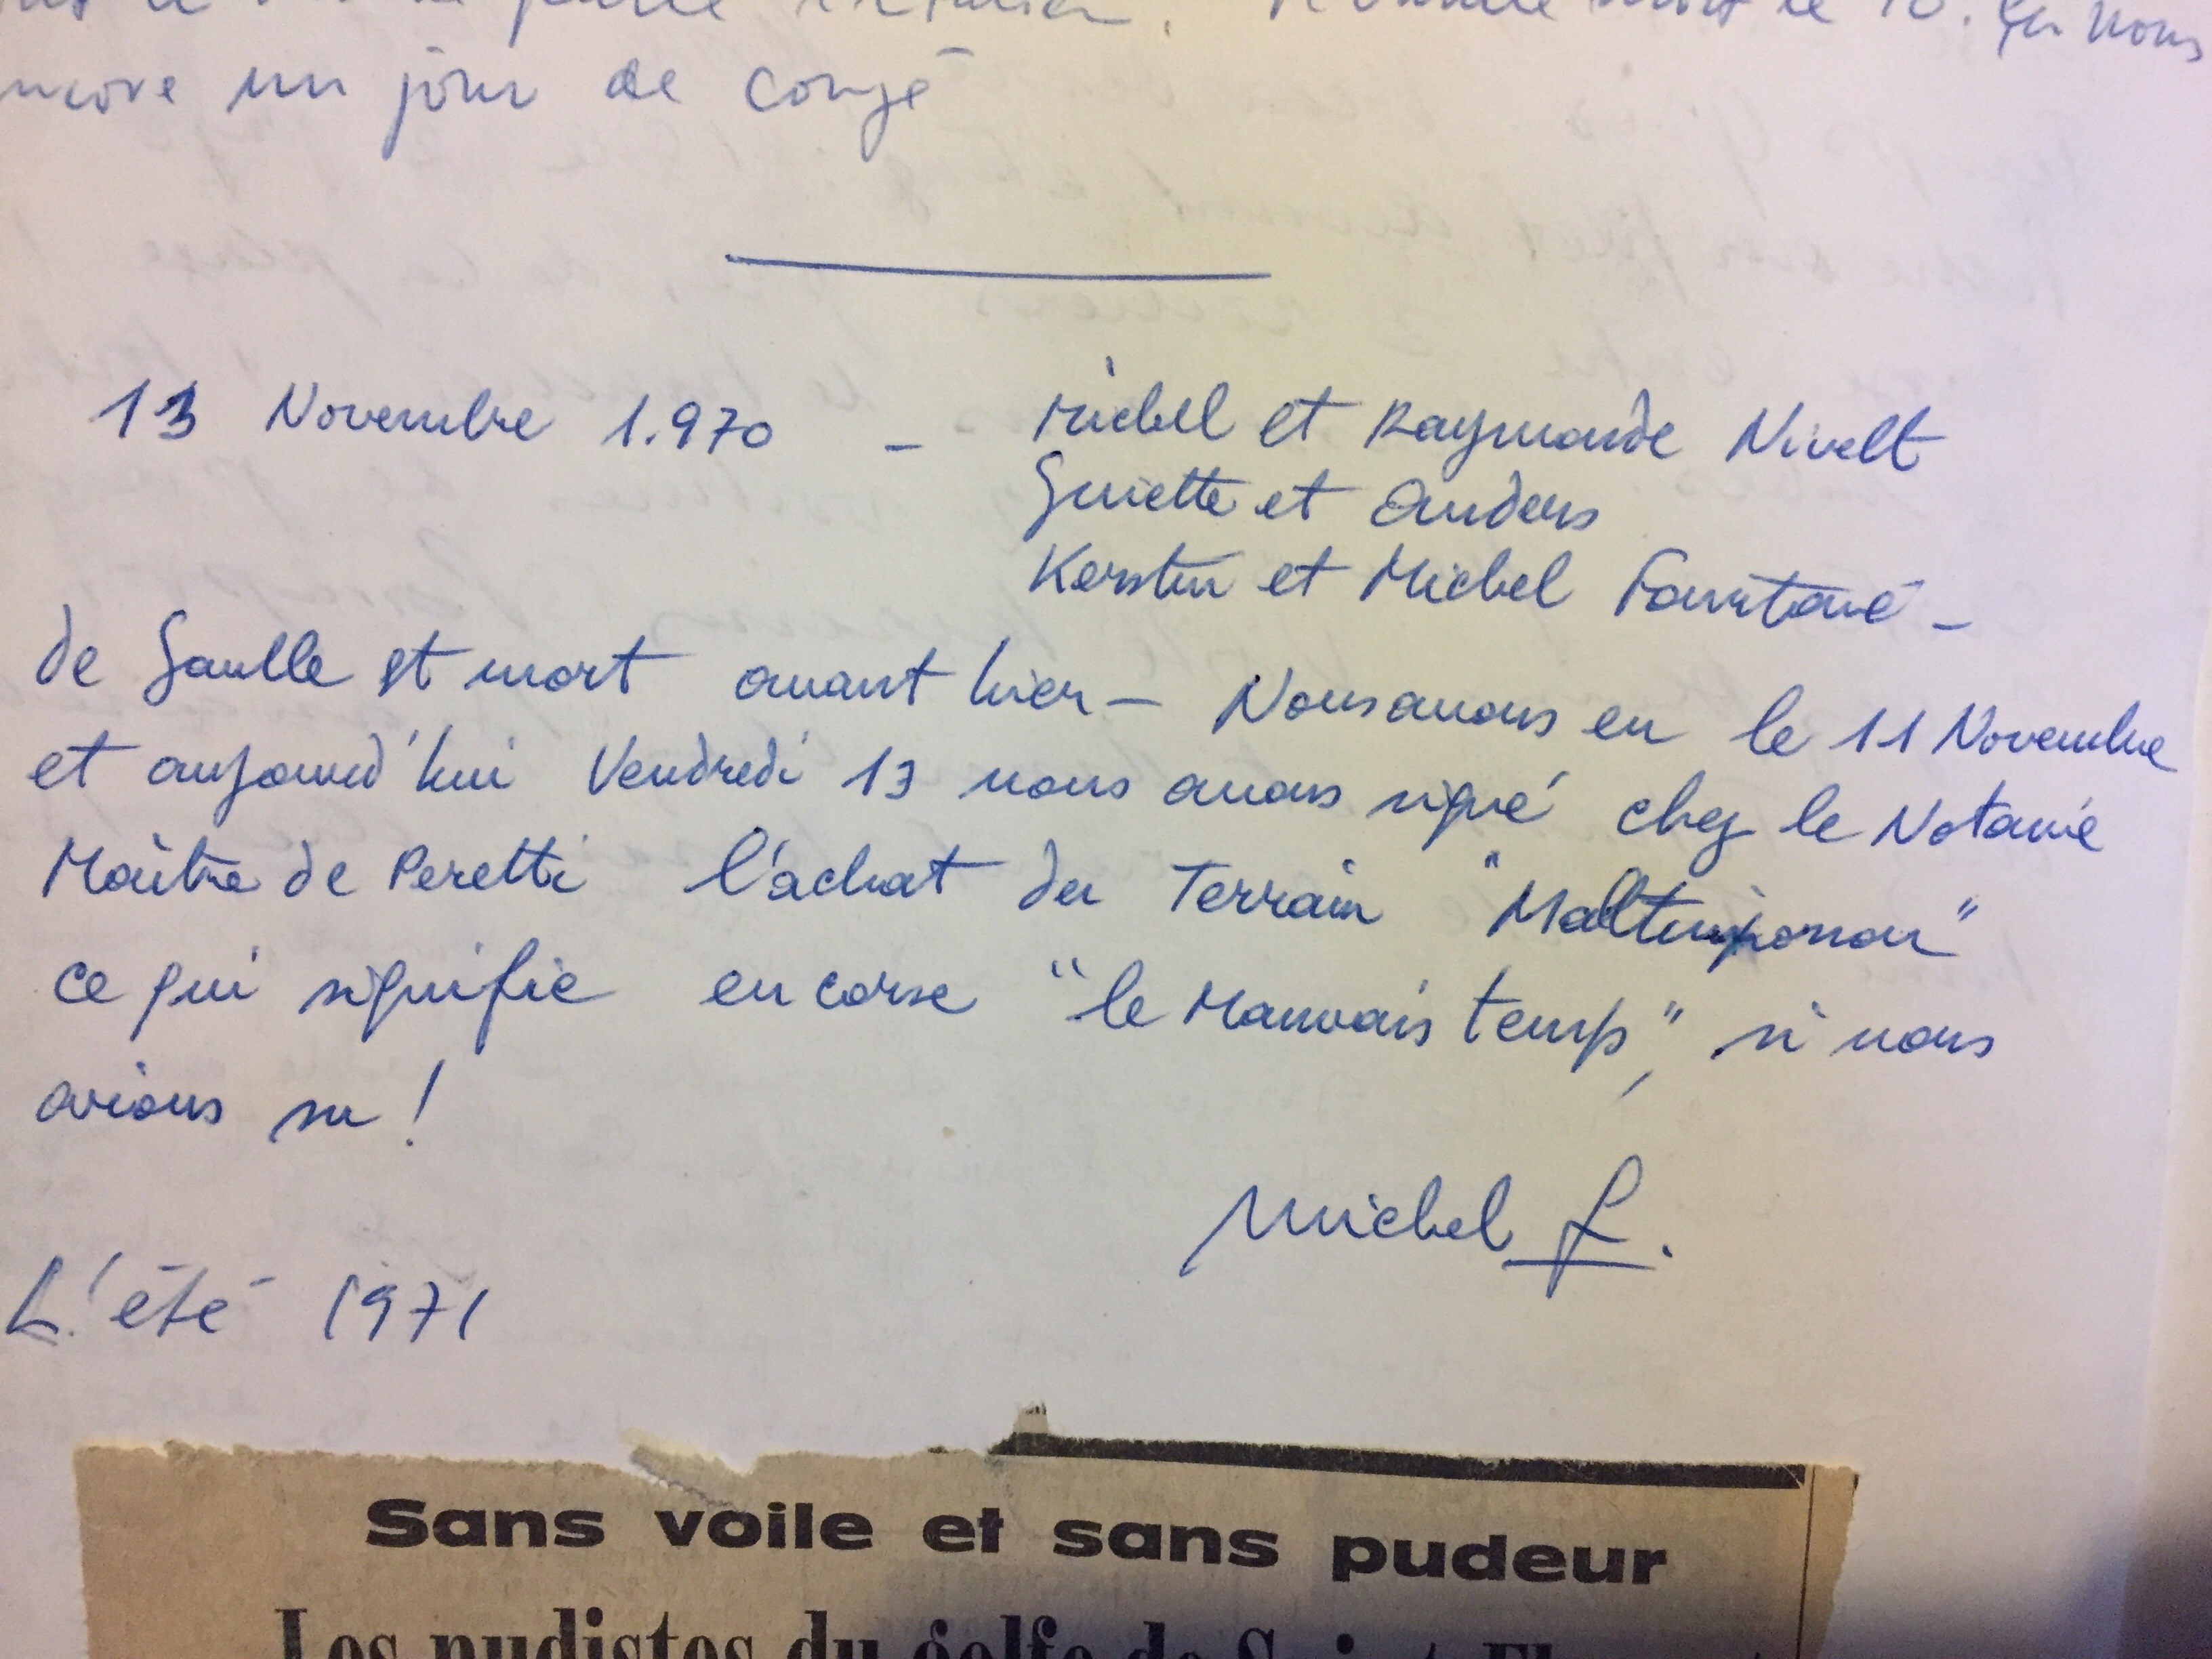 mort le 10. Ça nous
encore un jour de congé
13 Novembre 1.970 - Michel et Raymonde Nivelt
Guiette et Anders
Kerstin et Michel
de Gaulle est mort avant hier - Nous avons eu le 11 Novembre
et aujourd'hui Vendredi 13 nous avons signé chez le Notaire
Maître de Peretti l'achat du Terrain
ce qui signifie en corse "le Mauvais temps", si nous
avions su !
Michel F.
L'été 1971
Sans voile et sans pudeur
Les nudistes du golfe de